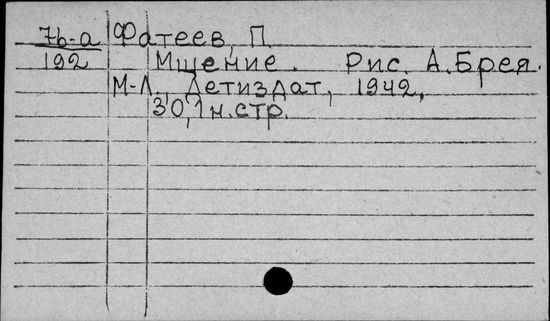 7б-а Фатеев, П.
192 Мщение. Рис. А. Брея.
М-Л., Детиздат, 1942.
30,1 н. стр.